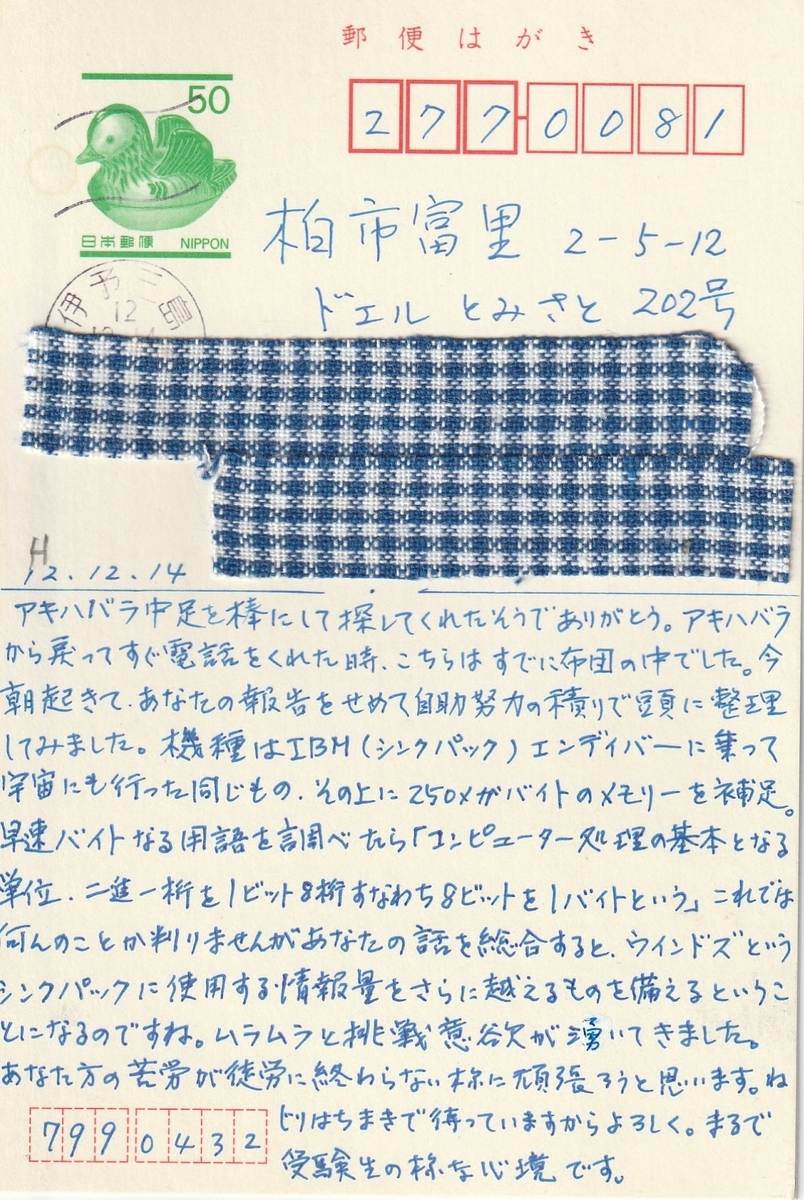 郵便はがき
50
日本郵便 NIPPON
277-0081
柏市富里 2-5-12
ドエル とみさと 202号
伊予三島
12
H
12.12.14
アキハバラ中足を棒にして探してくれたそうでありがとう。アキハバラ
から戻ってすぐ電話をくれた時、こちらはすでに布団の中でした。今
朝起きて、あなたの報告をせめて自助努力の積りで頭に整理
してみました。機種はIBM(シンクパック)エンディバーに乗って
宇宙にも行った同じもの、その上に250メガバイトのメモリーを補足。
早速バイトなる用語を調べたら「コンピューター処理の基本となる
単位、二進一桁を1ビット8桁すなわち8ビットを1バイトという」これでは
何んのことか判りませんがあなたの話を総合すると、ウインドズという
シンクパックに使用する情報量をさらに越えるものを備えるというこ
とになるのですね。ムラムラと挑戦意欲が湧いてきました。
あなた方の苦労が徒労に終わらない様に頑張ろうと思います。ね
じりはちまきで待っていますからよろしく。まるで
受験生の様な心境です。
7990432